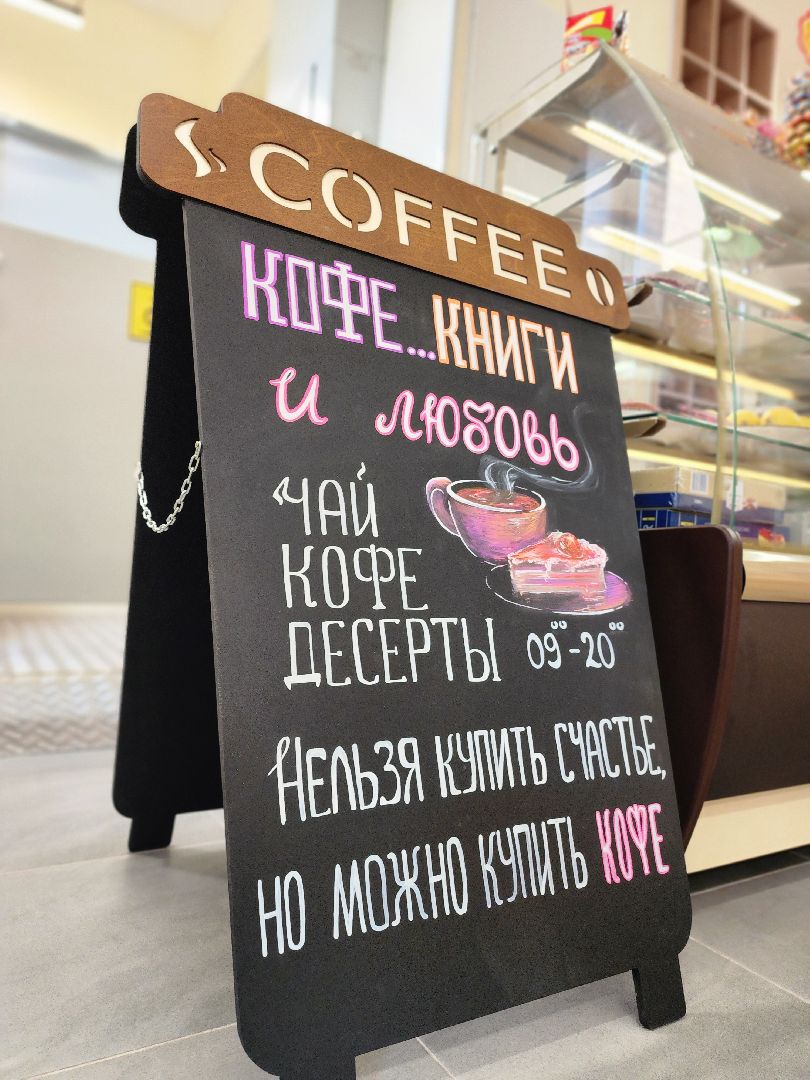 COFFEE
КОФЕ...КНИГИ
и любовь
ЧАЙ
КОФЕ
ДЕСЕРТЫ 09⁰⁰-20⁰⁰
НЕЛЬЗЯ КУПИТЬ СЧАСТЬЕ,
НО МОЖНО КУПИТЬ КОФЕ